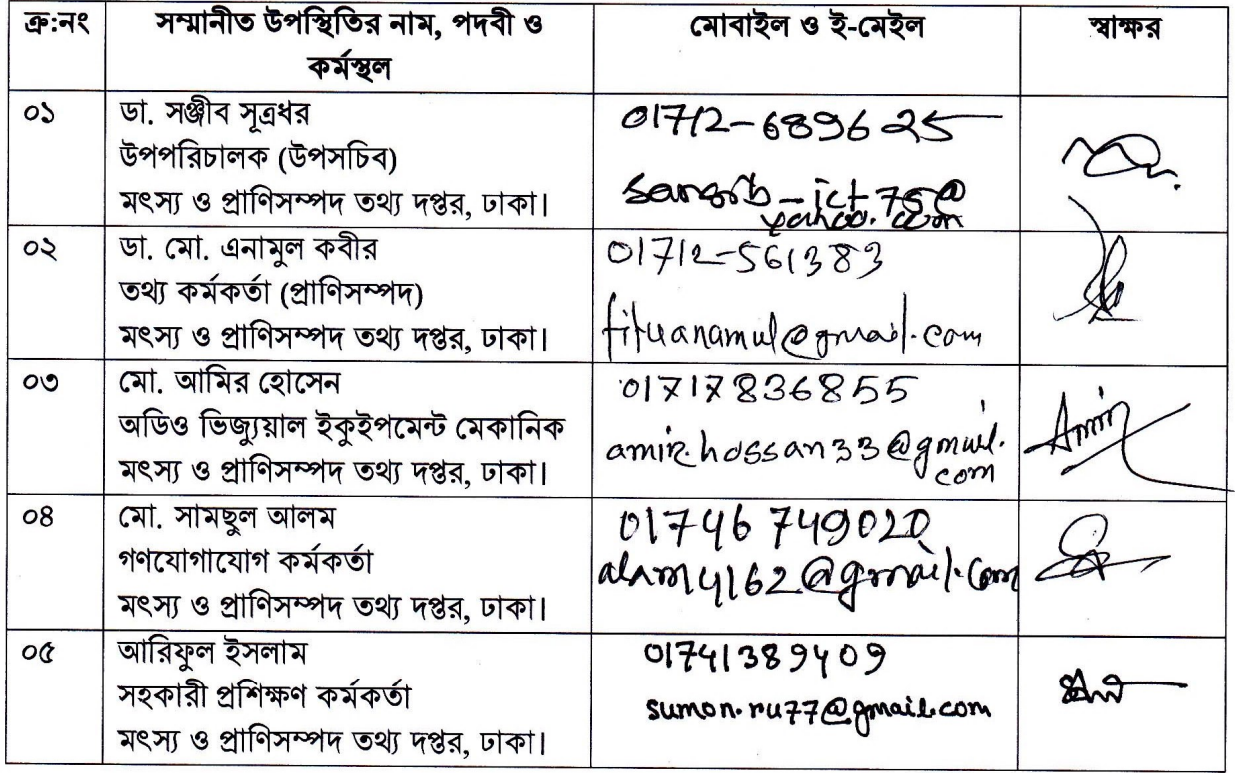 ক্র:নং
সম্মানীত উপস্থিতির নাম, পদবী ও
কর্মস্থল
মোবাইল ও ই-মেইল
স্বাক্ষর
০১
ডা. সঞ্জীব সূত্রধর
উপপরিচালক (উপসচিব)
মৎস্য ও প্রাণিসম্পদ তথ্য দপ্তর, ঢাকা।
01712-689625
yahoo.com
০২
ডা. মো. এনামুল কবীর
তথ্য কর্মকর্তা (প্রাণিসম্পদ)
মৎস্য ও প্রাণিসম্পদ তথ্য দপ্তর, ঢাকা।
01712-561383
০৩
মো. আমির হোসেন
অডিও ভিজ্যুয়াল ইকুইপমেন্ট মেকানিক
মৎস্য ও প্রাণিসম্পদ তথ্য দপ্তর, ঢাকা।
01717836855
amir.hossan33@gmail.
com
Amir
০৪
মো. সামছুল আলম
গণযোগাযোগ কর্মকর্তা
মৎস্য ও প্রাণিসম্পদ তথ্য দপ্তর, ঢাকা।
01746749020
alam4162@gmail.com
০৫
আরিফুল ইসলাম
সহকারী প্রশিক্ষণ কর্মকর্তা
মৎস্য ও প্রাণিসম্পদ তথ্য দপ্তর, ঢাকা।
01741389409
sumon.ru77@gmail.com